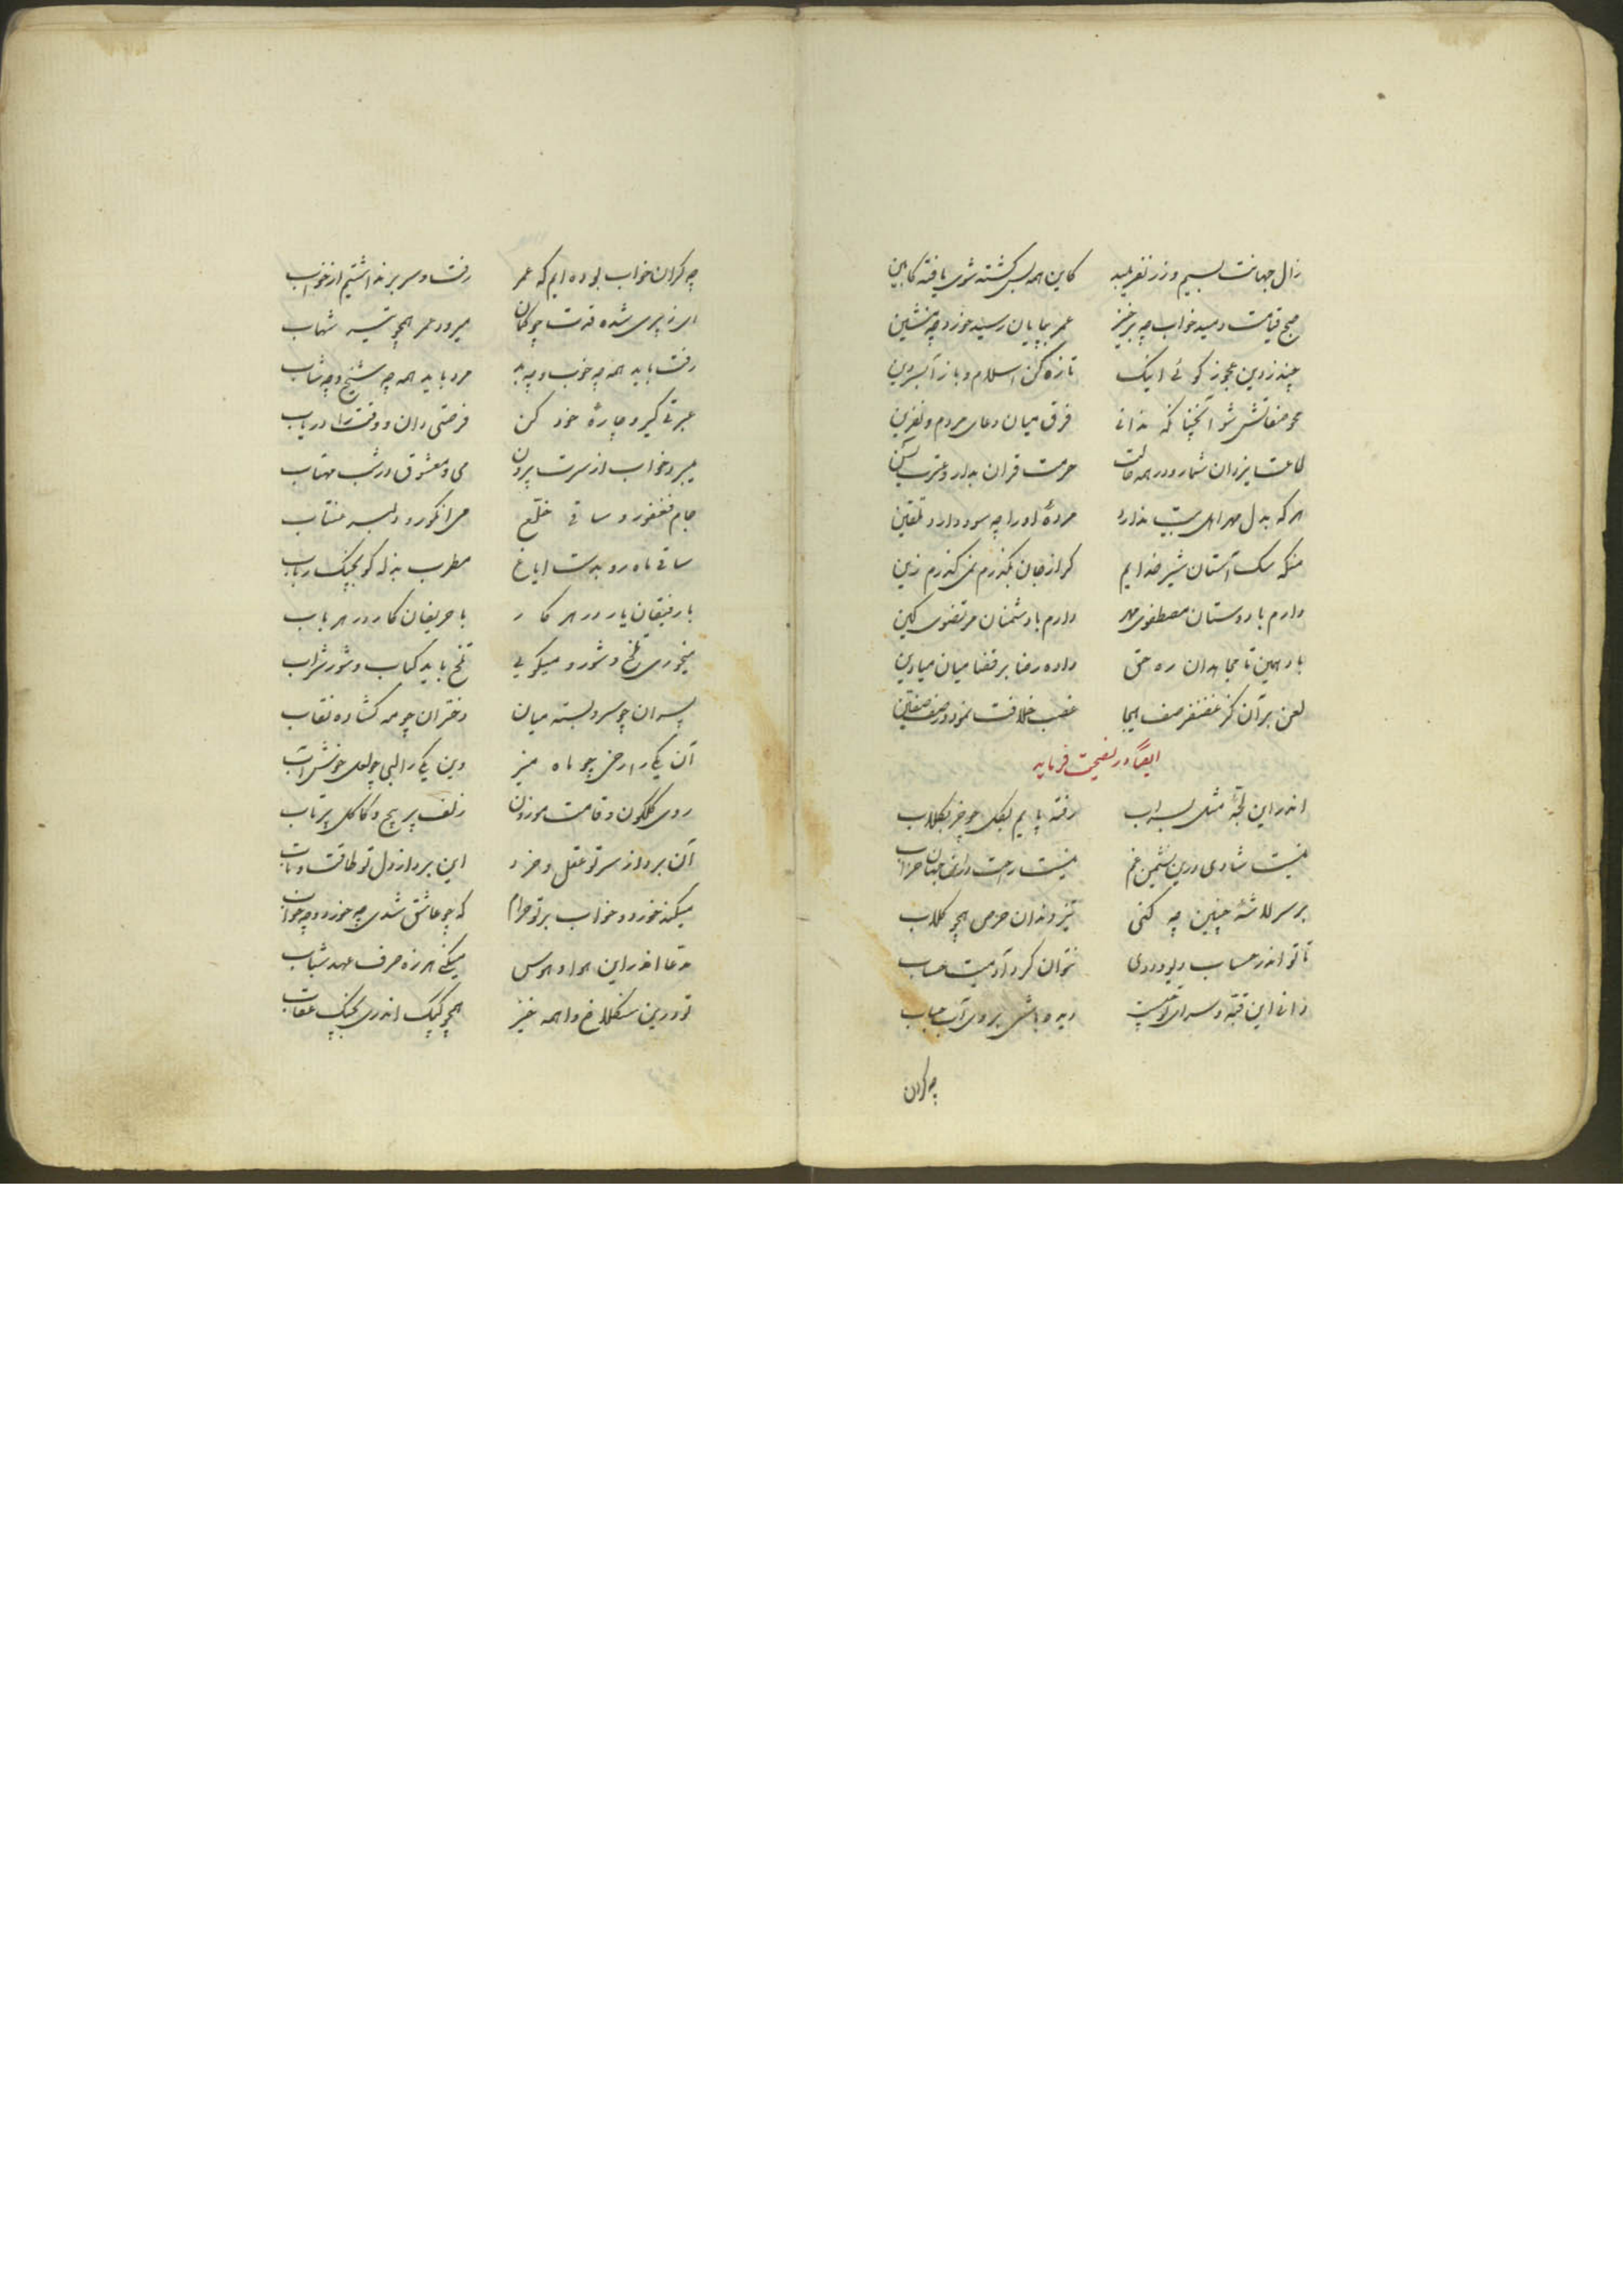 زال جهانت بسیم و زر نفریبد کاین همه بس کشته شوی یافته کابین
صبح قیامت دمید خواب چه برخیز عمر بپایان رسید خورد چه منشین
چند ز دین عجوز کوئی اینک تازه کن اسلام و باز آ بسر دین
محو صفاتش شو آنچنانکه ندانی فرق میان دعای مردم و نفرین
طاعت یزدان شمار و در همه حالت حرمت قران بدار و عترت یسن
هر که بدل مهر اهل بیت ندارد مرده او را چه سود دارد تلقین
منکه سک آستان شیر خدایم کر از جان بگذرم نمی کذرم زین
دارم با دوستان مصطفوی مهر دارم با دشمنان مرتضوی کین
باد همین تا مجاهدان ره حق داده رضا بر قضا میان میادین
لعن بر آن کز غضنفر صف هیجا غصب خلافت نمود در صف صفین
ایضاً در نصیحت فرماید
اندر این لجّه مثل سراب رفته پایم بکل چو خر بخلاب
نیست شادی درین نشیمن غم نیست راحت در این جهان خراب
بر سر لاشه چنین چه کنی تیز دندان حرص همچو کلاب
تا تو اندر حساب دیو و ددی نتوان کرد آدمیت حساب
دانی این قبّه و سرای تو چیست دیده باشی بروی آب حباب
چه کران
چه کران خواب بوده ایم که عمر رفت و سر بر نداشتیم از خواب
ای ز پیری شده قدت چو کمان میرود عمر همچو تیر شهاب
رفت باید همه چه خوب و چه بد مرد باید همه چه شیخ و چه شاب
عبرتی کیر و چاره خود کن فرصتی دان و وقت را دریاب
میبرد خواب از سرت بیرون می و معشوق در شب مهتاب
جام فغفور و ساقی خلّخ می انکور و دلبر عنّاب
ساقی ماه رو بدست ایاغ مطرب بذله کو بچنک رباب
با رفیقان یار در هر کار با حریفان کار در هر باب
میخوری تلخ و شور و میکوئی تلخ باید کباب و شور شراب
پسران چو سرو بسته میان دختران چو مه کشاده نقاب
آن یکی را رخی چو ماه منیر وین یکی را لبی چو لعل خوش آب
روی کلکون و قامت موزون زلف پر پیچ و کاکل پرتاب
آن برد از سر تو عقل و خرد این برد از دل تو طاقت و تاب
میکند خورد و خواب بر تو حرام که چو عاشق شدی چه خورد و چه خواب
مدعا اندر این هوا و هوس میکنی هرزه صرف عهد شباب
تو درین سنکلاخ واهمه خیز همچو کبک اندری بچنک عقاب